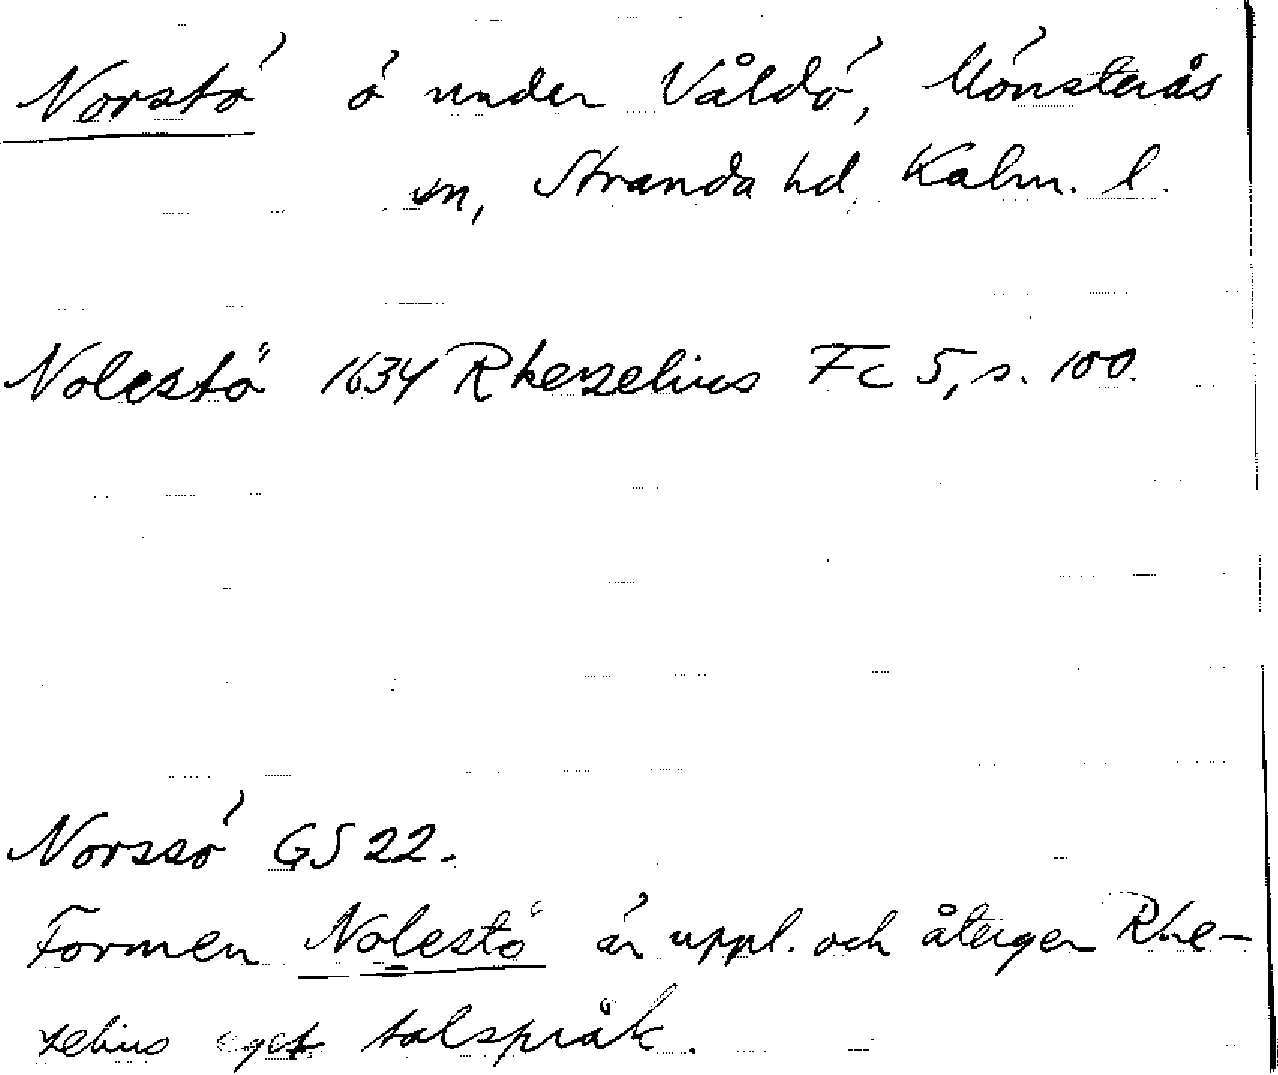 Norstö ö under Våldö, Mönsterås
sn, Stranda hd, Kalm. l.
Nolestö 1634 Rhezelius Fc 5, s. 100.
Norssö GS 22.
Formen Nolestö är uppl. och återger Rhe-
zelius eget talspråk.